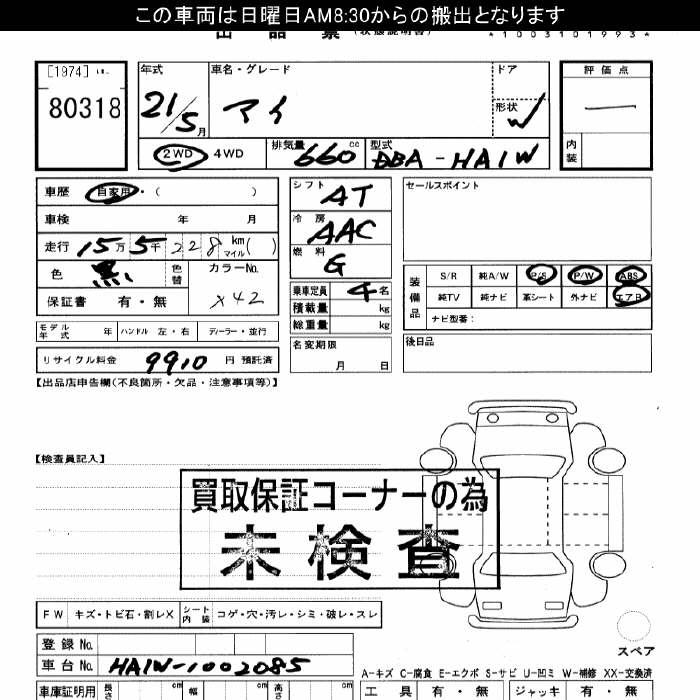 この車両は日曜日AM8:30からの搬出となります
*1003101993*
[1974]
80318
年式
21/5月
車名・グレード
マイ
ドア
形状
W
評価点
—
内装
2WD 4WD
排気量 660 cc
型式 DBA-HA1W
車歴 自家用・( )
車検 年 月
走行 15万5千228 km マイル( )
色 黒 色替
カラーNo. X42
保証書 有・無
シフト AT
冷房 AAC
燃料 G
乗車定員 4名
積載量 kg
総重量 kg
セールスポイント
装備品
S/R 純A/W P/S P/W ABS
純TV 純ナビ 革シート 外ナビ エアB
ナビ型番:
モデル年式 年 ハンドル 左・右 ディーラー・並行
リサイクル料金 9910 円 預託済
名変期限 月 日
後日品
【出品店申告欄(不良箇所・欠品・注意事項等)】
【検査員記入】
買取保証コーナーの為
未検査
FW キズ・トビ石・割レX シート内装 コゲ・穴・汚レ・シミ・破レ・スレ
スペア
登録No.
車台No. HA1W-1002085
A-キズ C-腐食 E-エクボ S-サビ U-凹ミ W-補修 XX-交換済
車庫証明用 長さ cm 幅 cm 高さ cm
工具 有・無 ジャッキ 有・無